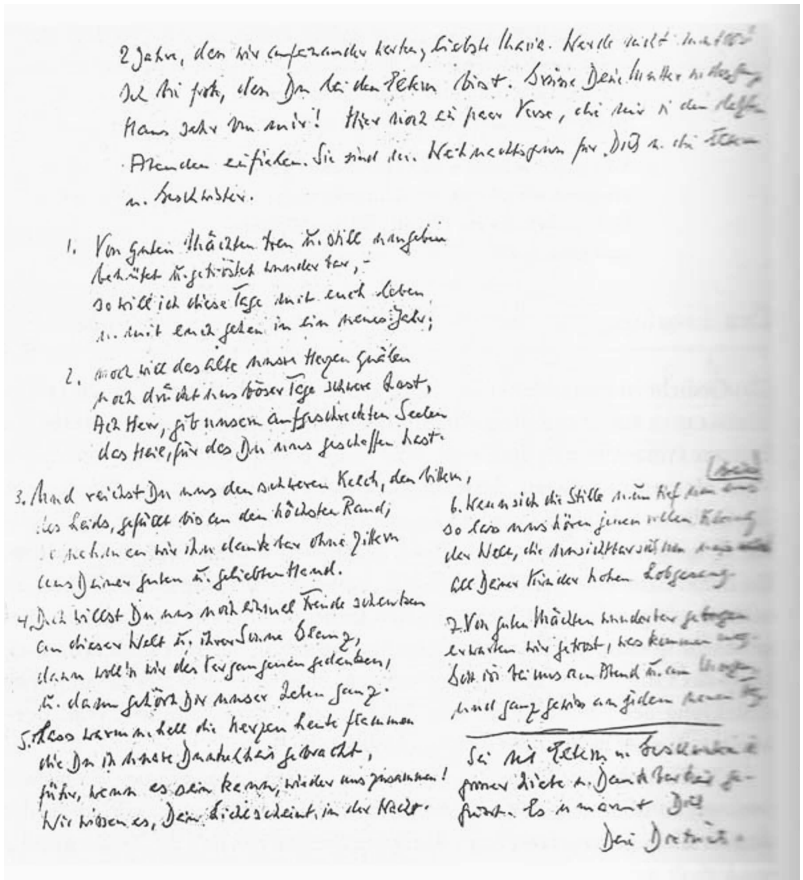 2 Jahre, dass wir aufeinander warten, liebste Maria. Werde nicht mutlos!
Ich bin froh, dass Du bei den Eltern bist. Grüsse Deine Mutter u. das ganze
Haus sehr von mir! Hier noch ein paar Verse, die mir in den letzten
Abenden einfielen. Sie sind der Weihnachtsgruss für Dich u. die Eltern
u. Geschwister.
1. Von guten Mächten treu u. still umgeben
behütet u. getröstet wunderbar, –
so will ich diese Tage mit euch leben
u. mit euch gehen in ein neues Jahr;
2. noch will das alte unsre Herzen quälen
noch drückt uns böser Tage schwere Last,
Ach Herr, gib unsern aufgeschreckten Seelen
das Heil, für das Du uns geschaffen hast.
3. Und reichst Du uns den schweren Kelch, den bittern,
des Leids, gefüllt bis an den höchsten Rand,
so nehmen wir ihn dankbar ohne Zittern
aus Deiner guten u. geliebten Hand.
4. Doch willst Du uns noch einmal Freude schenken
an dieser Welt u. ihrer Sonne Glanz,
dann woll'n wir des Vergangenen gedenken,
u. dann gehört Dir unser Leben ganz.
5. Lass warm u. hell die Kerzen heute flammen
die Du in unsre Dunkelheit gebracht,
führ, wenn es sein kann, wieder uns zusammen!
Wir wissen es, Dein Licht scheint in der Nacht.
6. Wenn sich die Stille nun tief um uns
so lass uns hören jenen vollen Klang
der Welt, die unsichtbar sich um uns
all Deiner Kinder hohen Lobgesang.
7. Von guten Mächten wunderbar geborgen
erwarten wir getrost, was kommen mag.
Gott ist bei uns am Abend u. am Morgen
und ganz gewiss an jedem neuen Tag.
Sei mit Eltern u. Geschwistern in
grosser Liebe u. Dankbarkeit ge-
grüsst. Es umarmt Dich
Dein Dietrich.